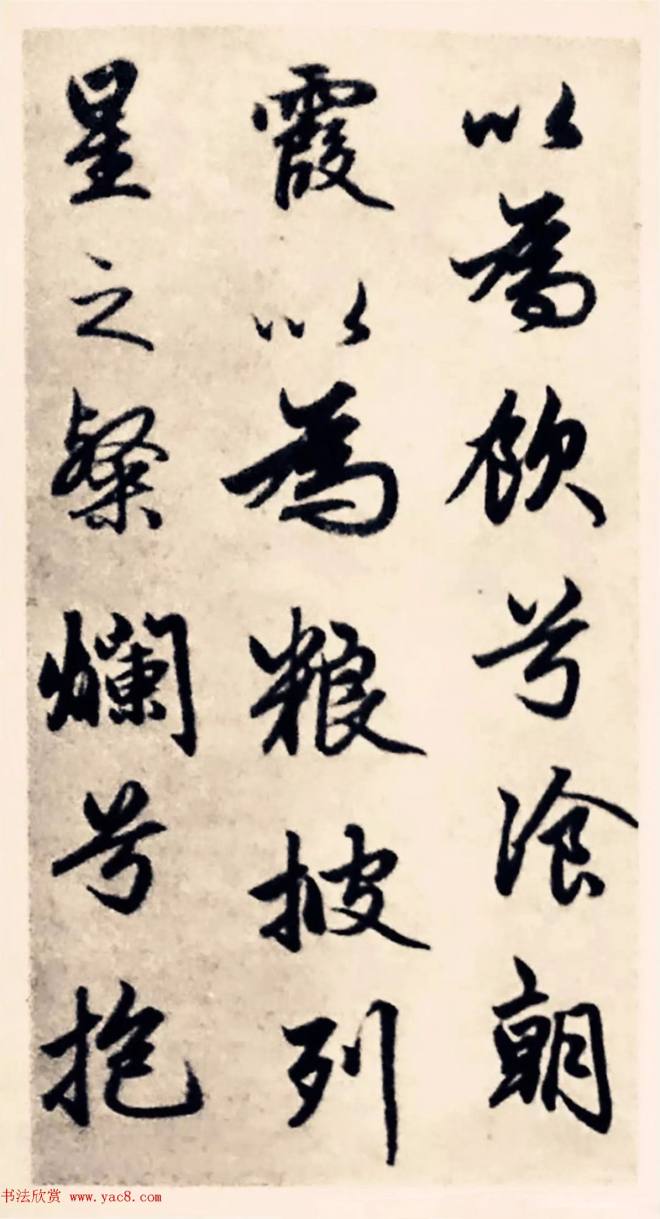 以為飲兮飡朝
霞以為粮披列
星之粲爛兮抱
书法欣赏 www.yac8.com